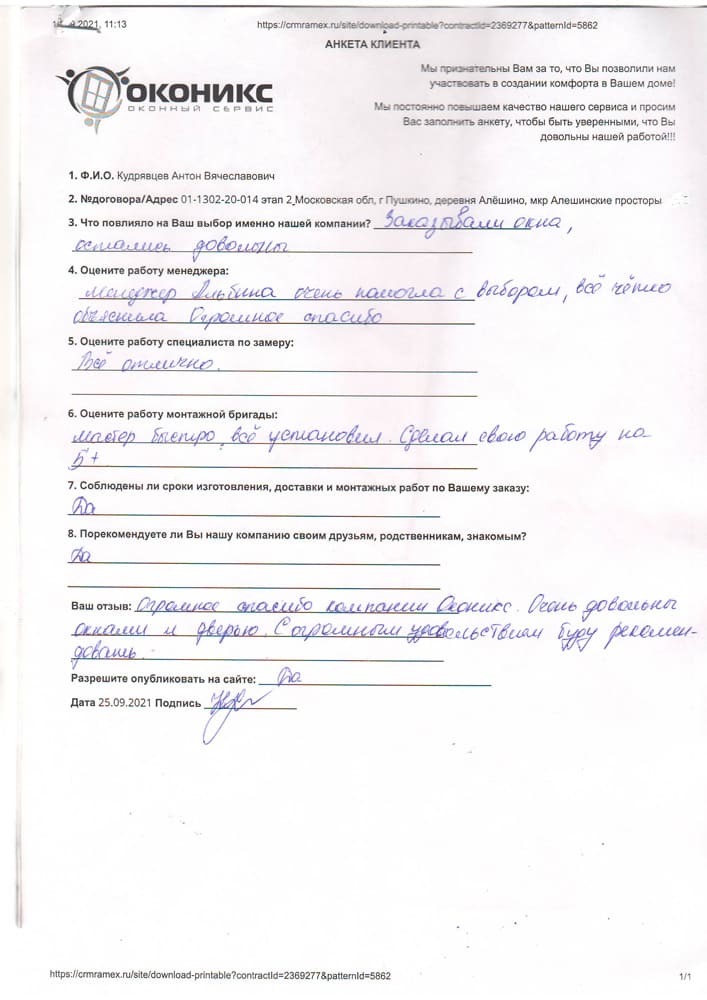 .09.2021, 11:13
https://crmramex.ru/site/download-printable?contractId=2369277&patternId=5862
АНКЕТА КЛИЕНТА
ОКОНИКС
ОКОННЫЙ СЕРВИС
Мы признательны Вам за то, что Вы позволили нам
участвовать в создании комфорта в Вашем доме!
Мы постоянно повышаем качество нашего сервиса и просим
Вас заполнить анкету, чтобы быть уверенными, что Вы
довольны нашей работой!!!
1. Ф.И.О. Кудрявцев Антон Вячеславович
2. №договора/Адрес 01-1302-20-014 этап 2 Московская обл, г Пушкино, деревня Алёшино, мкр Алешинские просторы
3. Что повлияло на Ваш выбор именно нашей компании? Заказывали окна,
остались довольны
4. Оцените работу менеджера:
Менеджер Альбина очень помогла с выбором, всё чётко
объяснила Огромное спасибо
5. Оцените работу специалиста по замеру:
Всё отлично.
6. Оцените работу монтажной бригады:
Мастер быстро всё установил. Сделал свою работу на
5+
7. Соблюдены ли сроки изготовления, доставки и монтажных работ по Вашему заказу:
Да
8. Порекомендуете ли Вы нашу компанию своим друзьям, родственникам, знакомым?
Да
Ваш отзыв: Огромное спасибо компании Оконикс. Очень довольны
окнами и дверью. С огромным удовольствием буду рекомен-
довать.
Разрешите опубликовать на сайте: Да
Дата 25.09.2021 Подпись
https://crmramex.ru/site/download-printable?contractId=2369277&patternId=5862
1/1